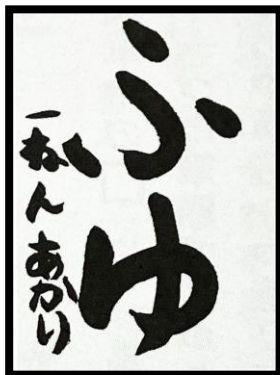 ふゆ
一ねん あかり